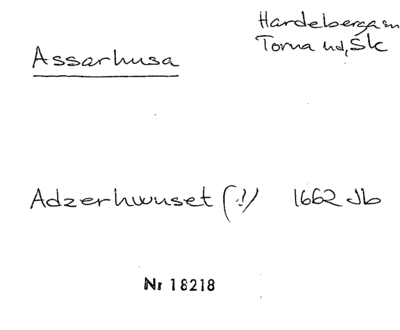 Hardeberga sn
Torna hd, Sk
Assarhusa
Adzerhwuset (!) 1662 Jb
Nr 18218